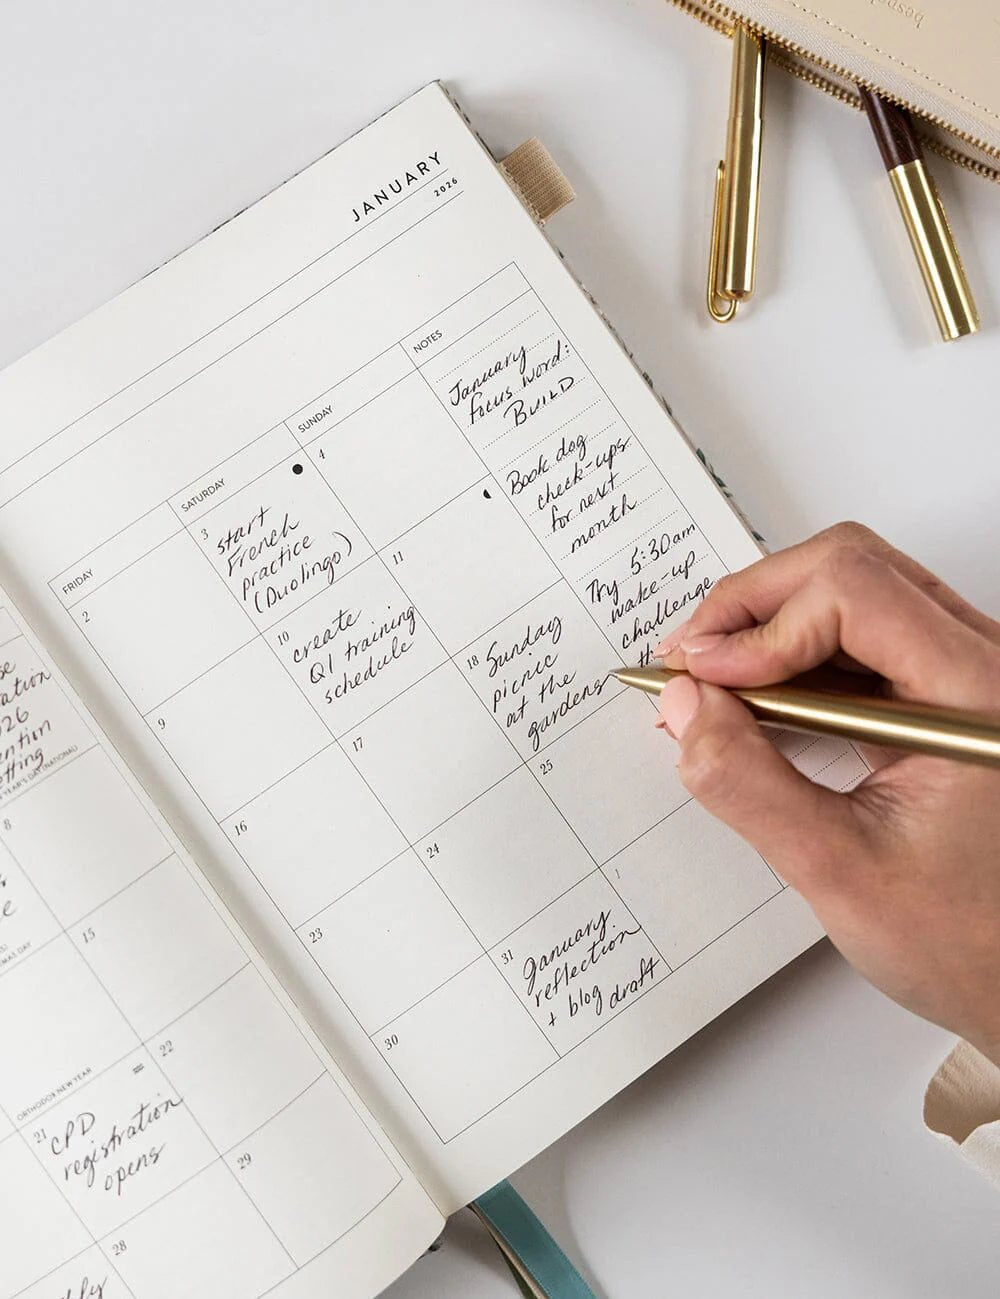 JANUARY
2026
FRIDAY
SATURDAY
SUNDAY
NOTES
2
3
start
French
practice
(Duolingo)
4
9
10
create
Q1 training
schedule
11
16
17
18
Sunday
picnic
at the
gardens
23
24
25
30
31
January
reflection
+ blog draft
1
January
focus word:
BUILD
Book dog
check-ups
for next
month
Try 5:30am
wake-up
challenge
8
15
ORTHODOX NEW YEAR
21
CPD
registration
opens
22
28
29